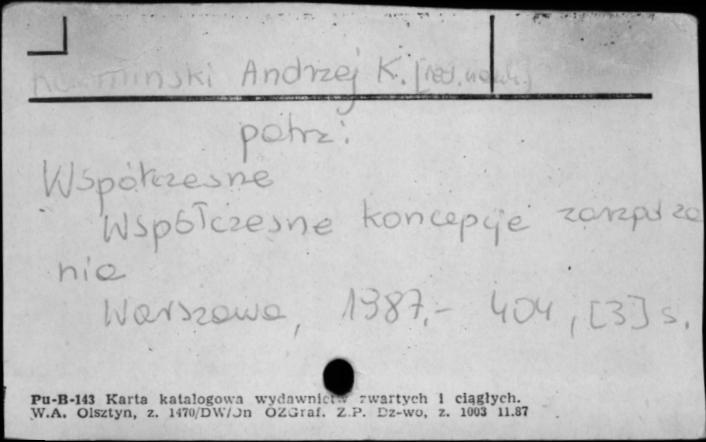 Koźmiński Andrzej K. [red. nauk.]
patrz:
Współczesne
Współczesne koncepcje zarządza
nia
Warszawa, 1987.- 404, [3] s.
Pu-B-143 Karta katalogowa wydawnictw zwartych i ciągłych.
W.A. Olsztyn, z. 1470/DW/Jn OZGraf. Z.P. Dz-wo, z. 1003 11.87